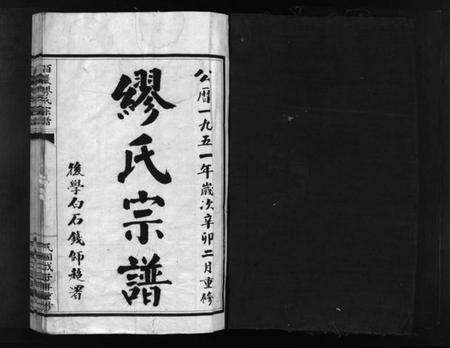 公曆一九五一年歲次辛卯二月重修
繆氏宗譜
後學白石錢師題署
繆氏宗譜
民國戊子